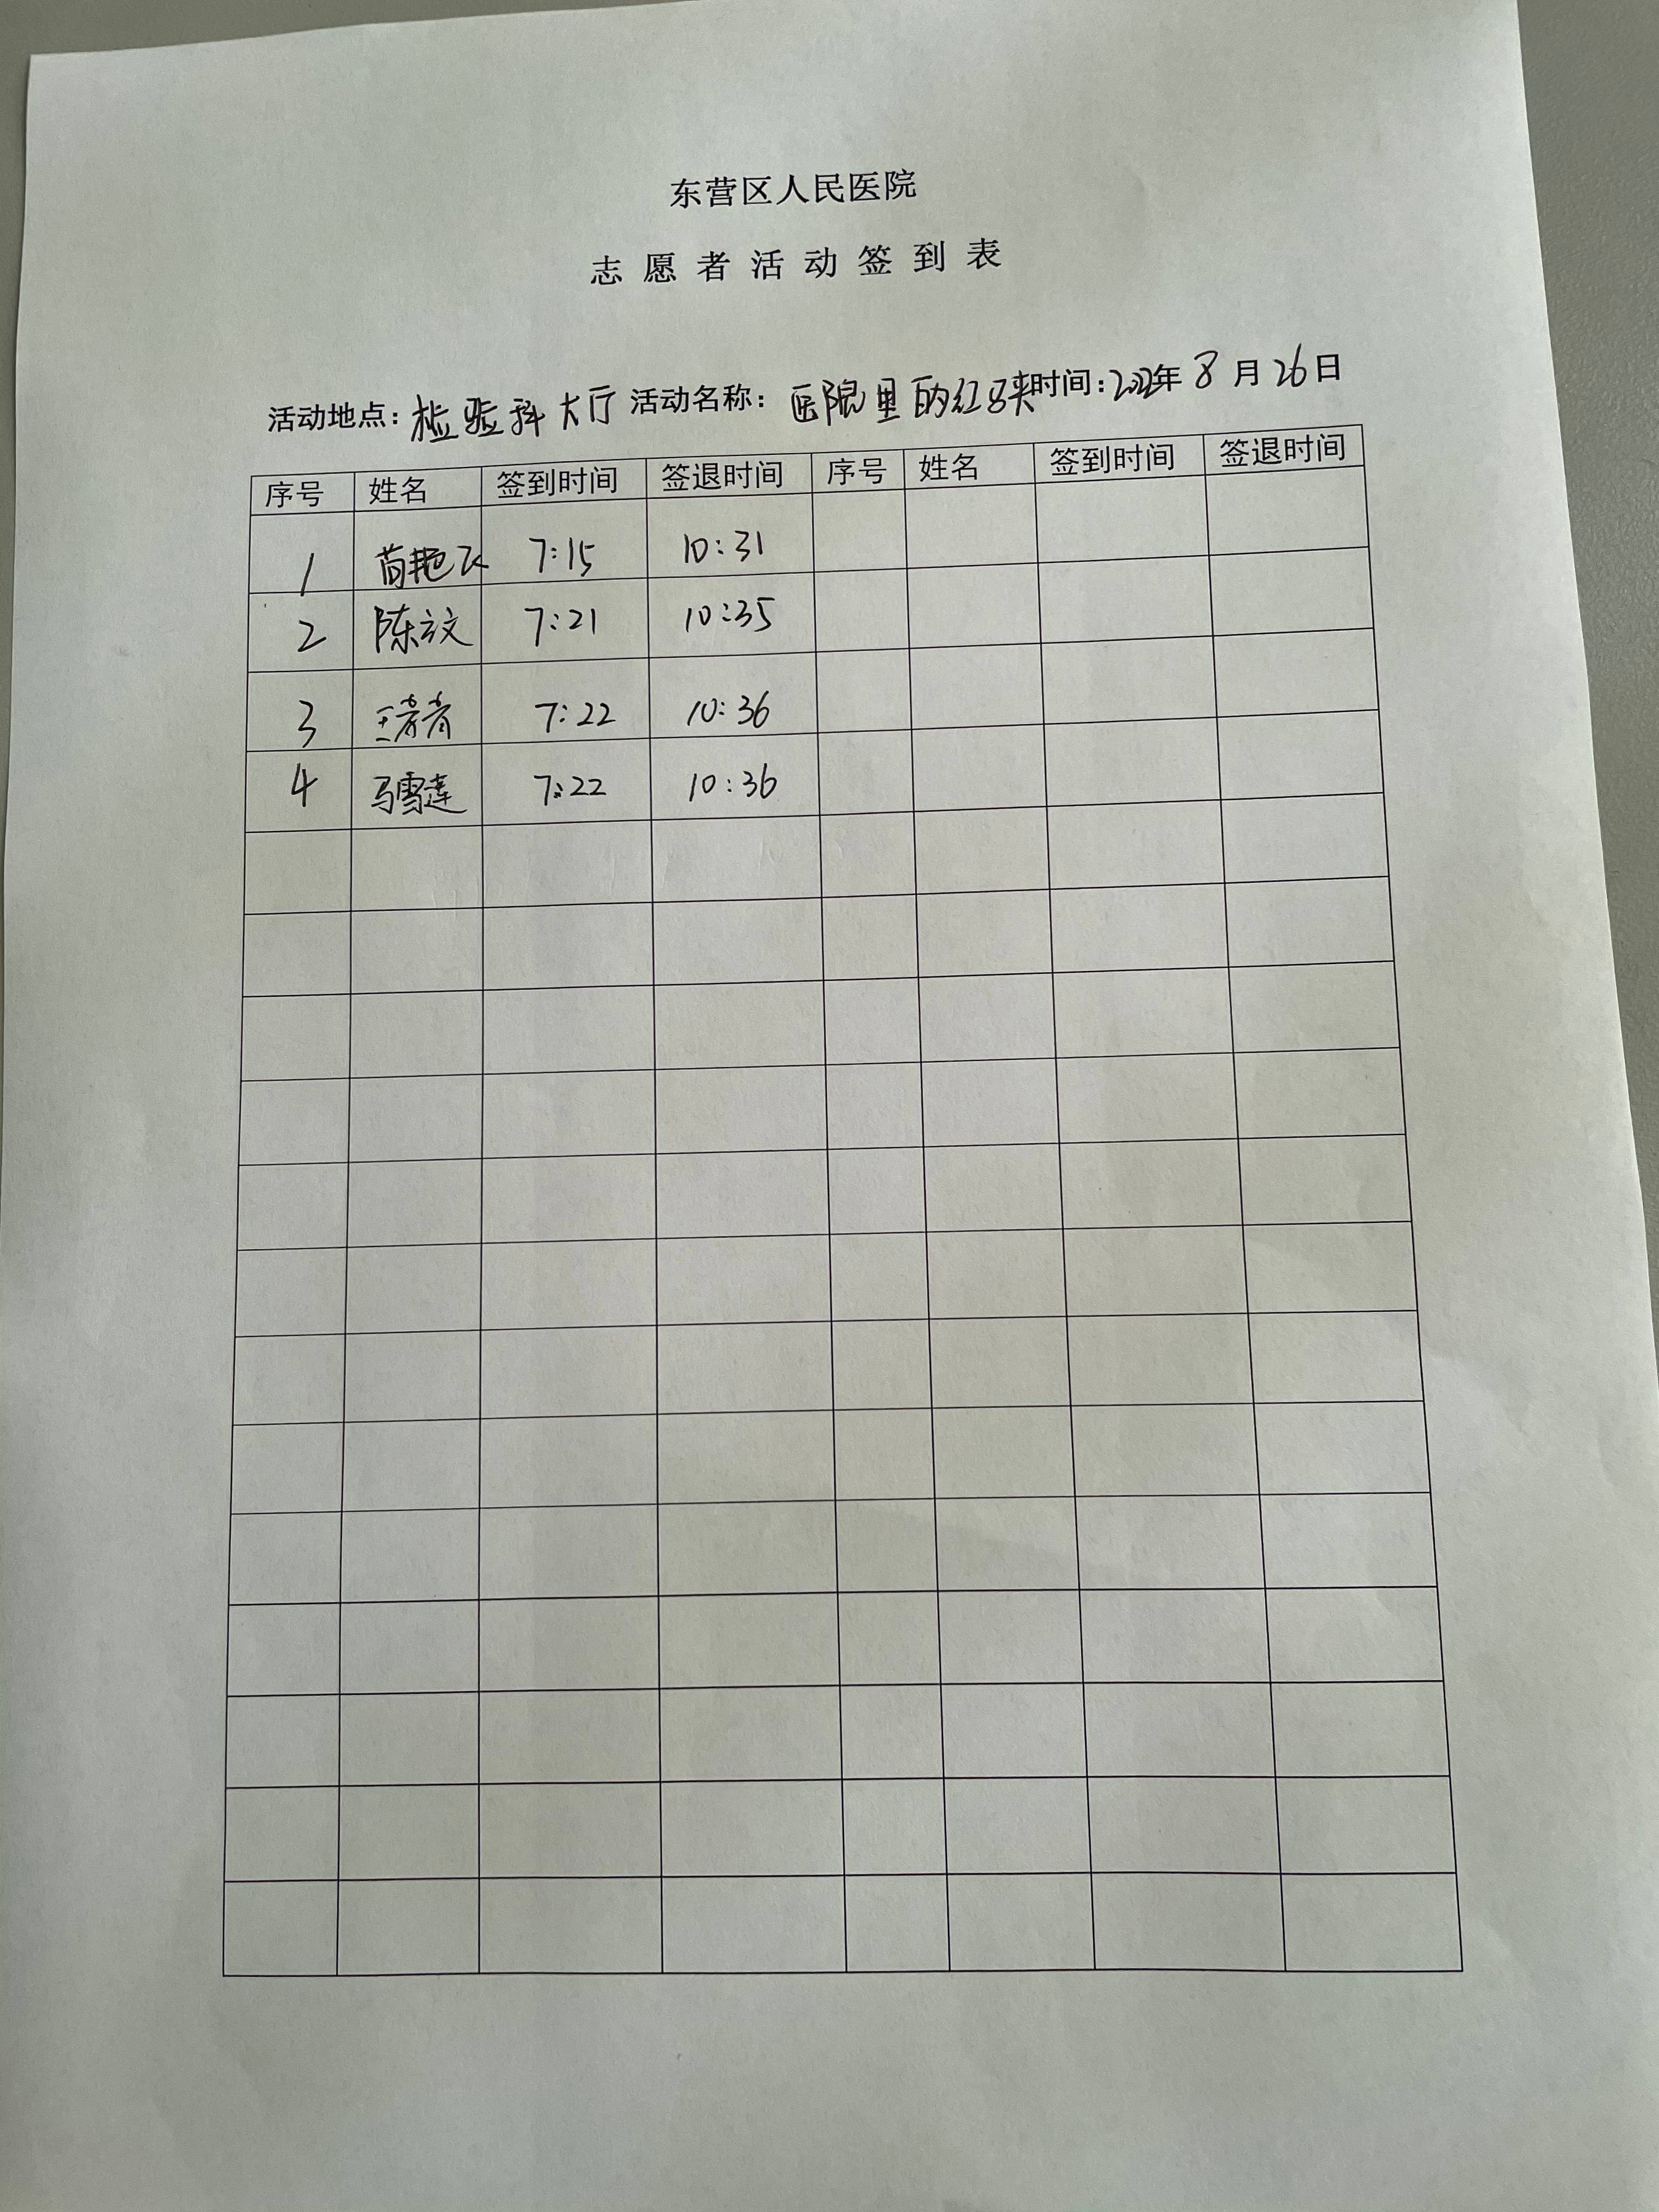 东营区人民医院
志愿者活动签到表
活动地点：检验科大厅 活动名称：医院里的红马夹 时间：2022年8月26日
序号 姓名 签到时间 签退时间 序号 姓名 签到时间 签退时间
1 7:15 10:31
2 陈文 7:21 10:35
3 王青青 7:22 10:36
4 马雪莲 7:22 10:36